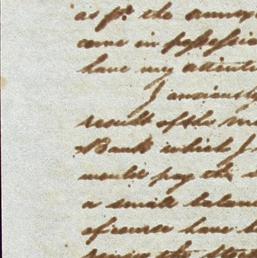 as pr. the annex
come in possessio
have my attenti
I anxiously
result of the m
Bank which I
would pay the
a small balanc
of course have b